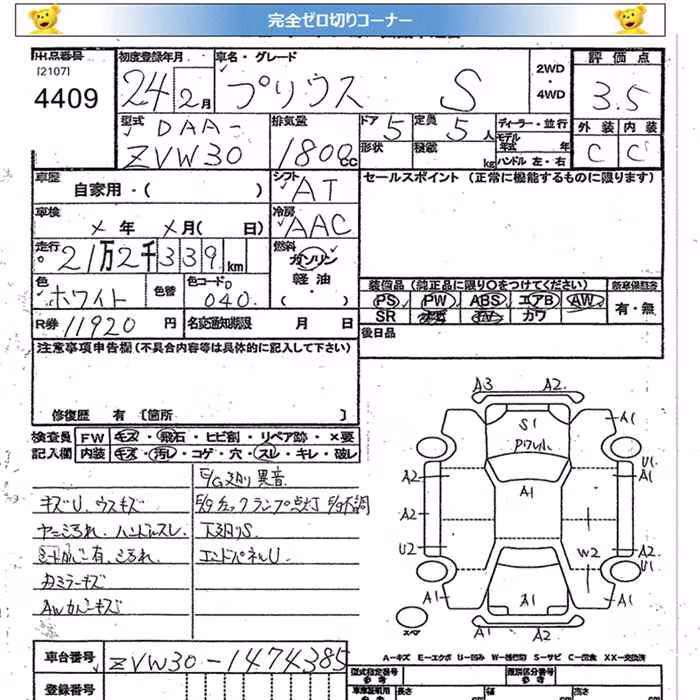 完全ゼロ切りコーナー
出品番号
[2107]
4409
初度登録年月
24年2月
車名・グレード
プリウス S
2WD
・
4WD
評価点
3.5
外装 内装
C C
型式
DAA-
ZVW30
排気量
1800cc
ドア 5
定員 5人
形状
積載 kg
ディーラー・並行
モデル年式 年
ハンドル 左・右
車歴
自家用・( )
シフト
AT
セールスポイント (正常に機能するものに限ります)
車検
× 年 ×月( 日)
冷房
AAC
走行
21万2千339km
燃料
ガソリン
軽油
・( )
色
ホワイト
色替
色コードNO
040
装備品 (純正品に限り○をつけてください)
PS PW ABS エアB AW
SR カワ
新車保証書
有・無
R券 11920 円
名変通知期限 月 日
後日品
注意事項申告欄(不具合内容等は具体的に記入して下さい)
修復歴 有 [箇所 ]
検査員記入欄
FW キズ・飛石・ヒビ割・リペア跡・×要
内装 キズ・汚レ・コゲ・穴・スレ・キレ・破レ
E/G廻り異音
キズU、ウスキズ
E/Gチェックランプ点灯 E/G不調
ヤニよごれ、ハンドルスレ
下廻りS
よごれ
エンドパネルU
ミラーキズ
AWカバーキズ
A3 A2
S1
A1
A1
U1
A1
A2
A1
A2
U2
W2
A2
U1
A1
A1
A1
A2
スペア
A-キズ E-エクボ U-凹み W-補修跡 S-サビ C-腐食 XX-交換済
車台番号
ZVW30-1474385
型式指定番号
参考
類別区分番号
参考
登録番号
長さ
幅
高さ